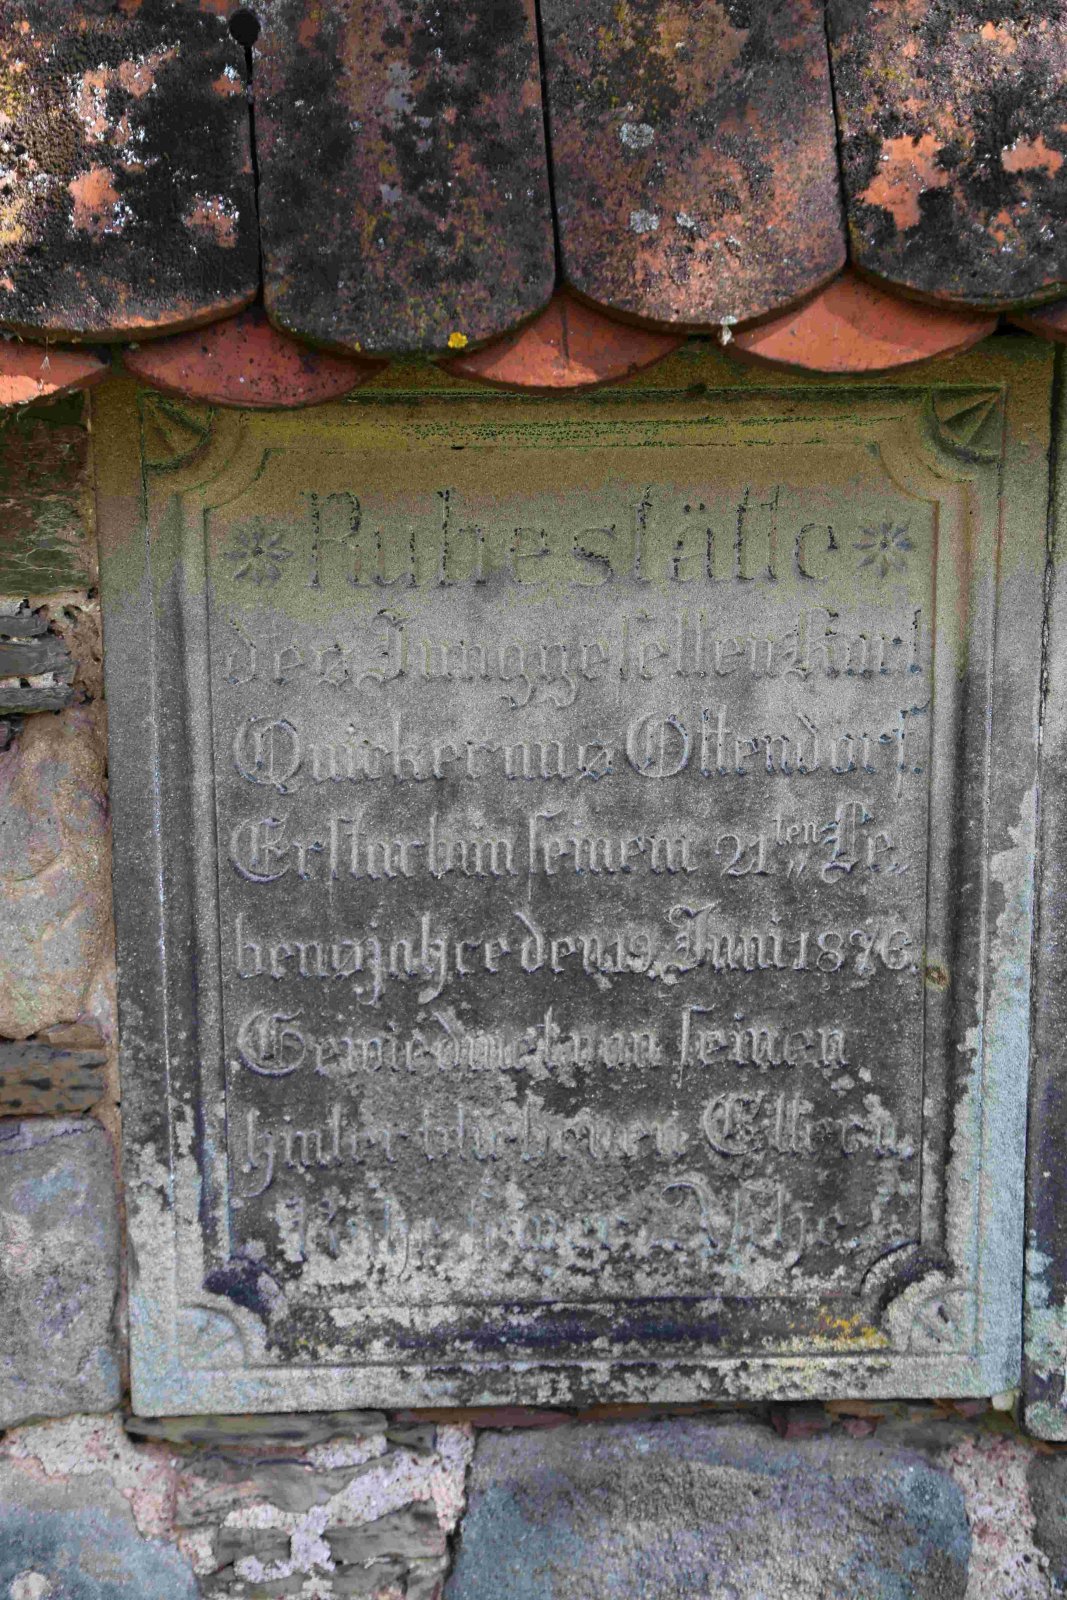 Ruhestätte
des Junggesellen Karl
Quicker aus Ottendorf.
Er starb in seinem 21ten Le
bensjahre den 19. Juni 1876.
Gewiedmet von seinen
hinterbliebenen Eltern.
Ruhe seiner Asche!